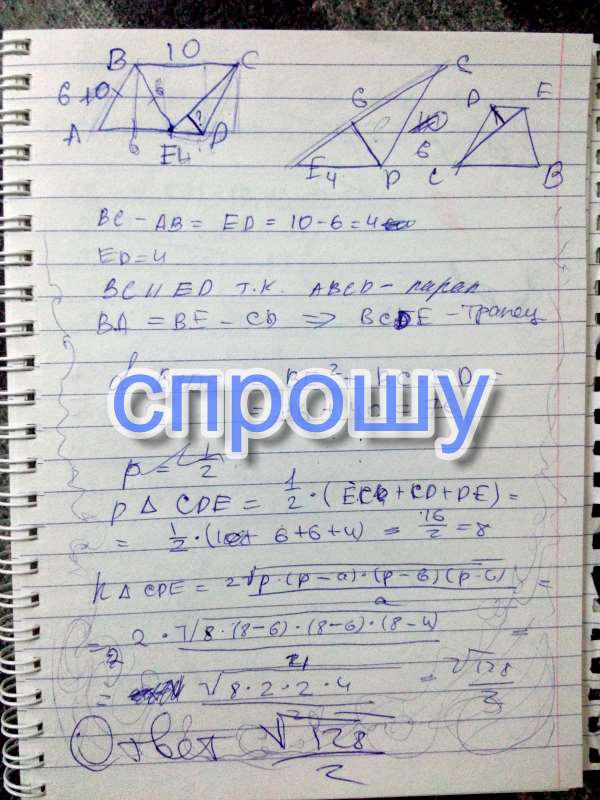 B 10 C
6 10 6
A 6 E 4 D
C
6
6
E 4 D
D E
C B
BC - AB = ED = 10 - 6 = 4
ED = 4
BC || ED т.к. ABCD - парал
BA = BE = CD => BCDE - трапец
спрошу
p = 1/2
p Δ CDE = 1/2 · (EC + CD + DE) =
= 1/2 · (6 + 6 + 4) = 16/2 = 8
h Δ CDE = 2√p · (p - a) · (p - b) (p - c) / a =
= 2 · √8 · (8-6) · (8-6) · (8-4) =
= √8 · 2 · 2 · 4 / 2 = √128 / 2
Ответ √128 / 2